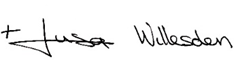 + Jusa Willesden